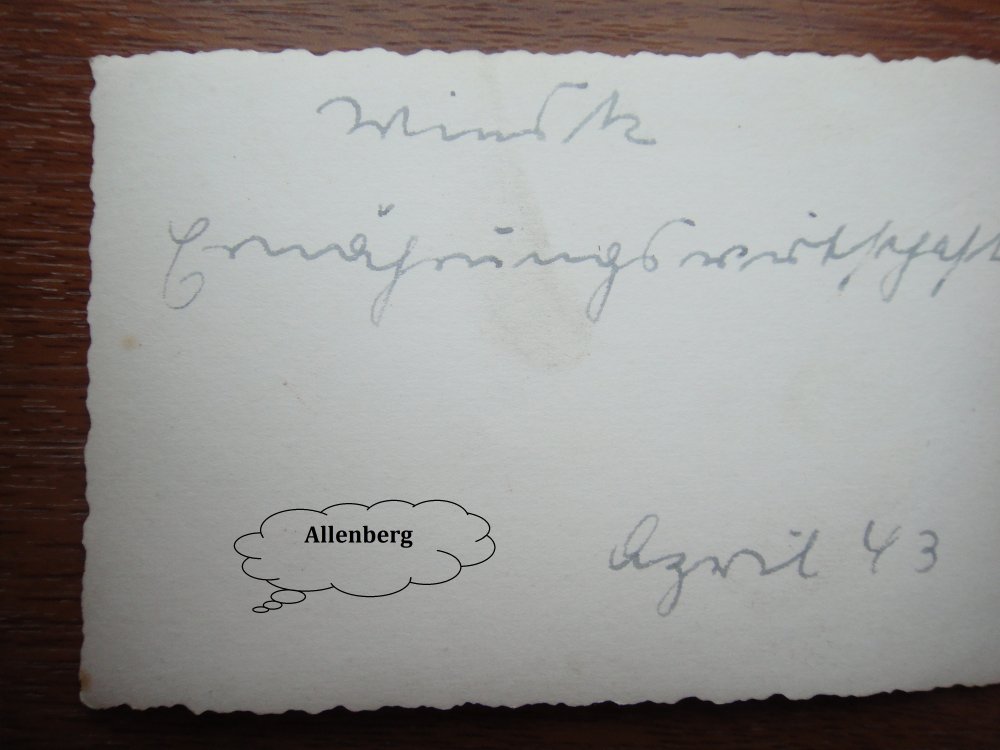 Minsk
Ernährungswirtschaft
Allenberg
April 43